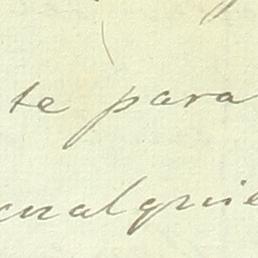 te para
cualquie